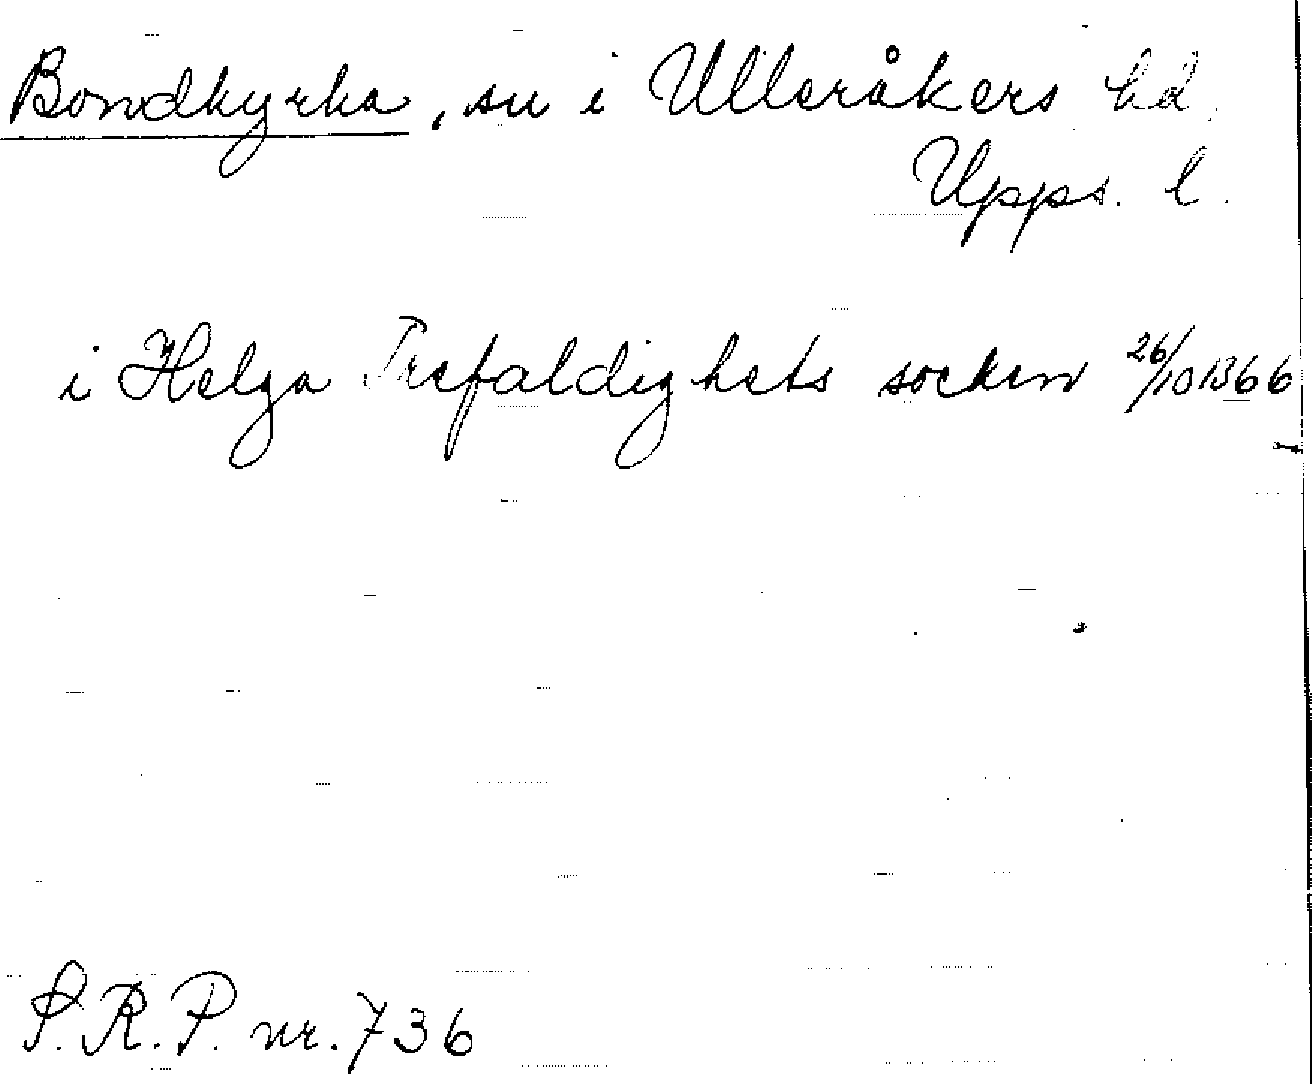 Bondkyrka, sn i Ulleråkers hd.
Upps. l.
i Helga Trefaldighets socken 26/10 1366
S.R.P. nr. 736